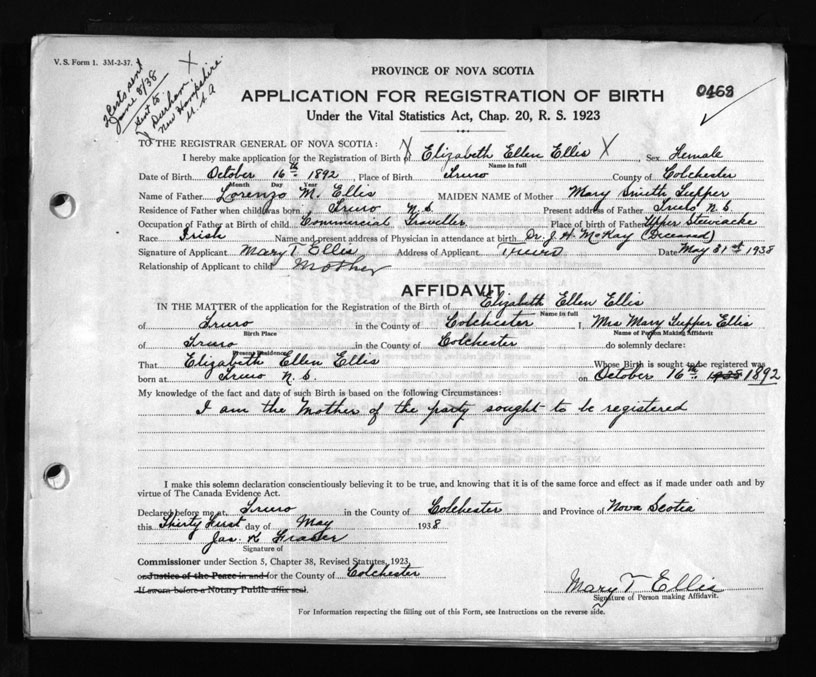 V. S. Form 1. 3M-2-37.
2 Certs sent
June 8/38
sent to
Durham,
New Hampshire.
U.S.A
X
PROVINCE OF NOVA SCOTIA
0463
APPLICATION FOR REGISTRATION OF BIRTH
Under the Vital Statistics Act, Chap. 20, R. S. 1923
TO THE REGISTRAR GENERAL OF NOVA SCOTIA:
I hereby make application for the Registration of Birth of X Elizabeth Ellen Ellis X Sex Female
Name in full
Date of Birth October 16th 1892, Place of Birth Truro County of Colchester
Month Day Year
Name of Father Lorenzo M. Ellis MAIDEN NAME of Mother Mary Smith Tupper
Residence of Father when child was born Truro N.S. Present address of Father Truro N.S.
Occupation of Father at Birth of child Commercial Traveller Place of birth of Father Upper Stewiacke
Race Irish Name and present address of Physician in attendance at birth Dr. J. H. McKay (Deceased)
Signature of Applicant Mary T Ellis Address of Applicant Truro Date May 31st 1938
Relationship of Applicant to child Mother
AFFIDAVIT
IN THE MATTER of the application for the Registration of the Birth of Elizabeth Ellen Ellis
Name in full
of Truro in the County of Colchester I, Mrs Mary Tupper Ellis
Birth Place Name of Person Making Affidavit
of Truro in the County of Colchester do solemnly declare:
Present Residence
That Elizabeth Ellen Ellis Whose Birth is sought to be registered was
born at Truro N.S. on October 16th 1938 1892
My knowledge of the fact and date of such Birth is based on the following Circumstances:
I am the Mother of the party sought to be registered
I make this solemn declaration conscientiously believing it to be true, and knowing that it is of the same force and effect as if made under oath and by
virtue of The Canada Evidence Act.
Declared before me at Truro in the County of Colchester and Province of Nova Scotia
this Thirty First day of May 1938
Jas. K Fraser
Signature of
Commissioner under Section 5, Chapter 38, Revised Statutes, 1923,
or Justice of the Peace in and for the County of Colchester
If sworn before a Notary Public affix seal.
Mary T Ellis
Signature of Person making Affidavit.
For Information respecting the filling out of this Form, see Instructions on the reverse side.